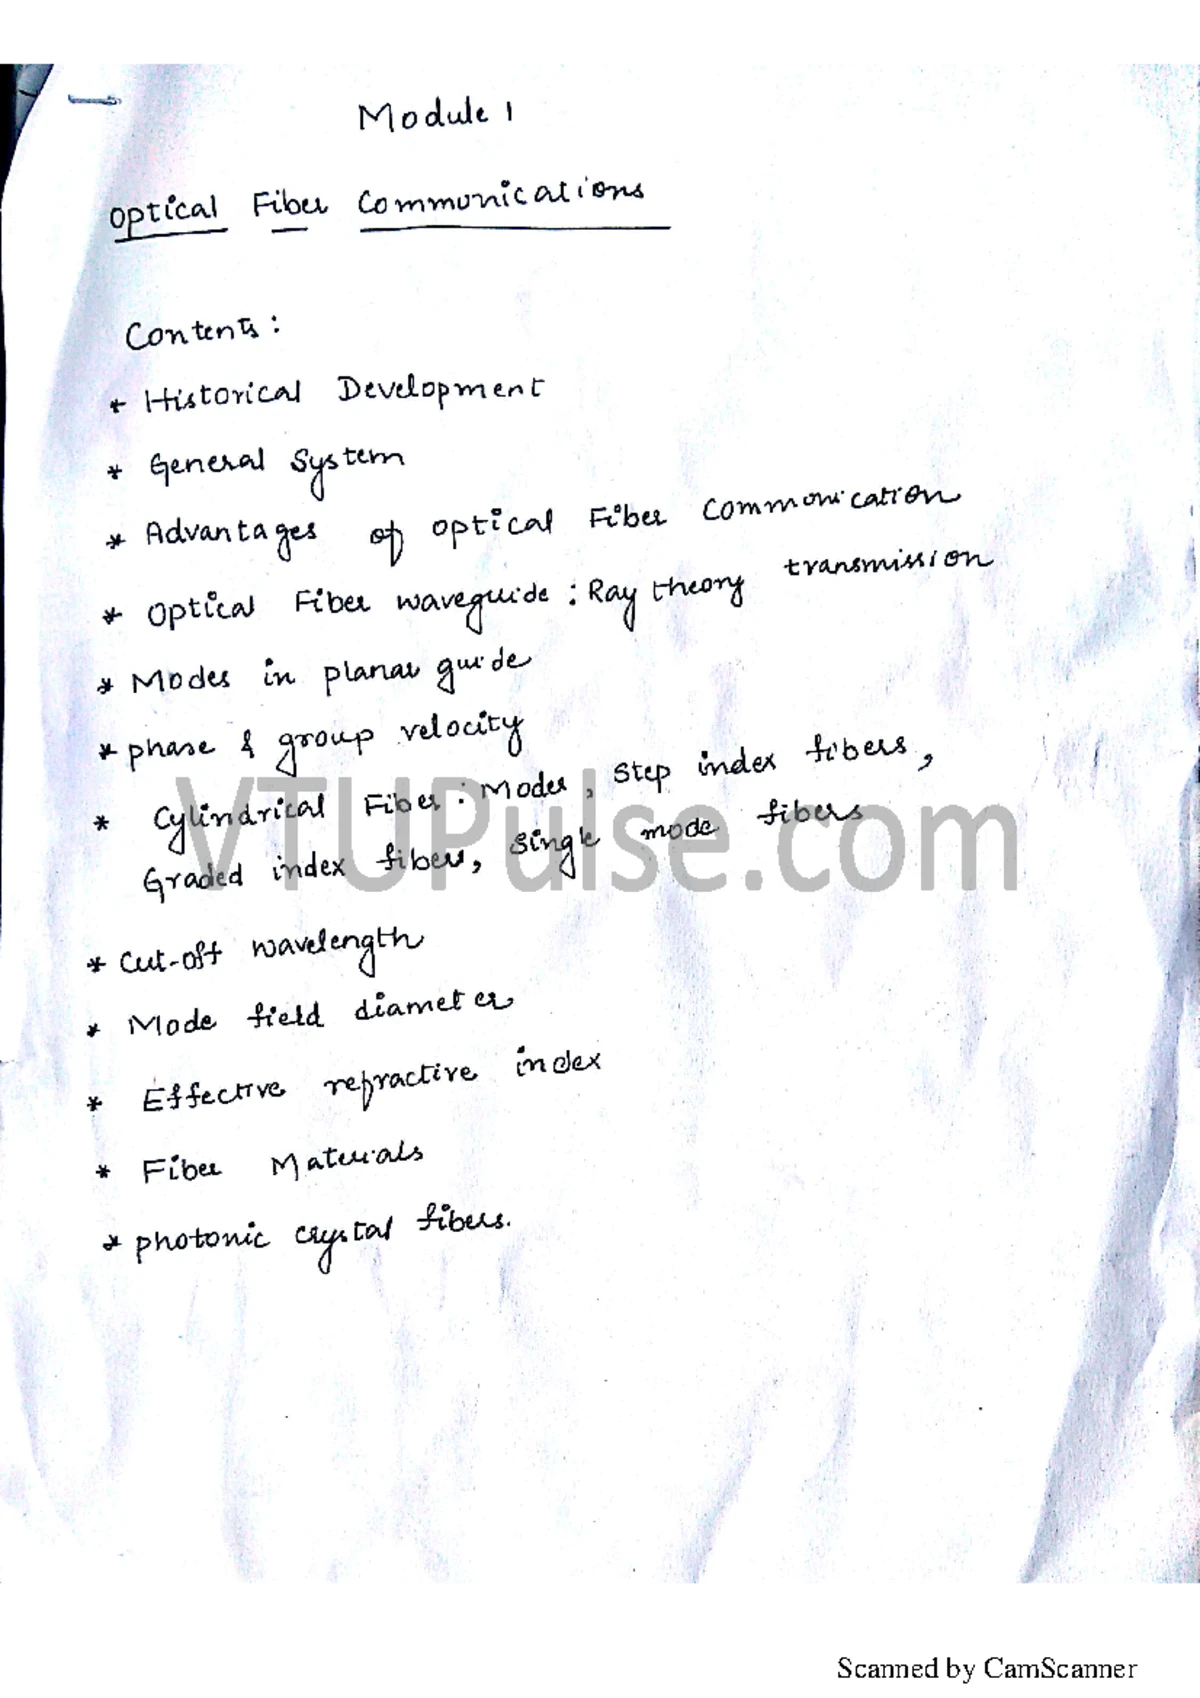 Module 1
Optical Fiber Communications
Contents:
* Historical Development
* General System
* Advantages of optical Fiber Communication
* Optical Fiber waveguide: Ray theory transmission
* Modes in planar guide
* phase & group velocity
* Cylindrical Fiber: Modes, Step index fibers,
Graded index fibers, Single mode fibers
VTUPulse.com
* Cut-off wavelength
* Mode field diameter
* Effective refractive index
* Fiber Materials
* photonic crystal fibers.
Scanned by CamScanner